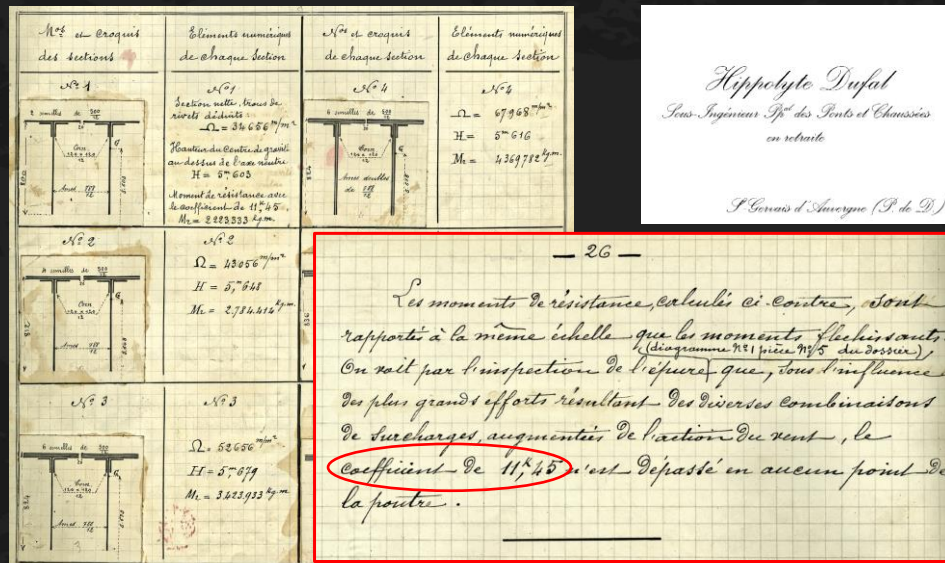 Nos et croquis
des sections
Eléments numériques
de chaque Section
Nos et croquis
de chaque section
Eléments numériques
de chaque section
No 1
2 semelles de 500/12
Corn
120 x 120
Ames 588/12
800
G
No 1
Section nette, trous de
rivets déduits:
Ω = 34656 m/m²
Hauteur du Centre de gravité
au dessus de l'axe neutre
H = 5m603
Moment de résistance avec
le coefficient de 11k45
Mr = 2223333 kg.m.
No 4
6 semelles de 500/12
Corn
120 x 120
Ames doubles
824
G
No 4
Ω = 67968 m/m²
H = 5m616
Mr = 4369792 kg.m.
No 2
4 semelles de 500/12
Corn
120 x 120
G
No 2
Ω = 43056 m/m²
H = 5,m648
Mr = 2.784.414 kg.m
No 3
6 semelles de 500/12
Corn
120 x 120
824
G
No 3
Ω = 52656 m/m²
H = 5m679
Mr = 3.423.933 kg.m
836
Hippolyte Dufal
Sous-Ingénieur Ppal des Ponts et Chaussées
en retraite
St Gervais d'Auvergne (P. de D.)
— 26 —
Les moments de résistance, calculés ci-contre, sont
rapportés à la même échelle que les moments fléchissants.
(diagramme No 1 pièce No 5 du dossier)
On voit par l'inspection de l'épure que, sous l'influence
des plus grands efforts résultant des diverses combinaisons
de surcharges, augmentées de l'action du vent, le
coefficient de 11k,45 n'est dépassé en aucun point de
la poutre.